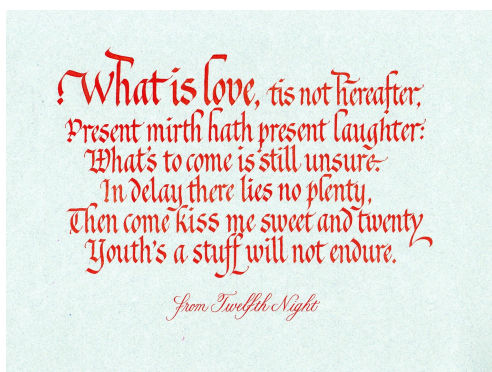 What is love, tis not hereafter,
Present mirth hath present laughter:
What's to come is still unsure.
In delay there lies no plenty,
Then come kiss me sweet and twenty
Youth's a stuff will not endure.
from Twelfth Night